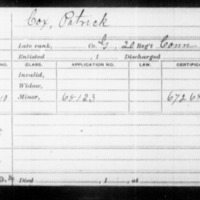 Cox, Patrick
Late rank, Co. G, 20 Reg't Conn
Enlisted , 1 Discharged
CLASS. APPLICATION NO. LAW. CERTIF
Invalid,
Widow,
Minor, 68123 6726
Died , 1 , at